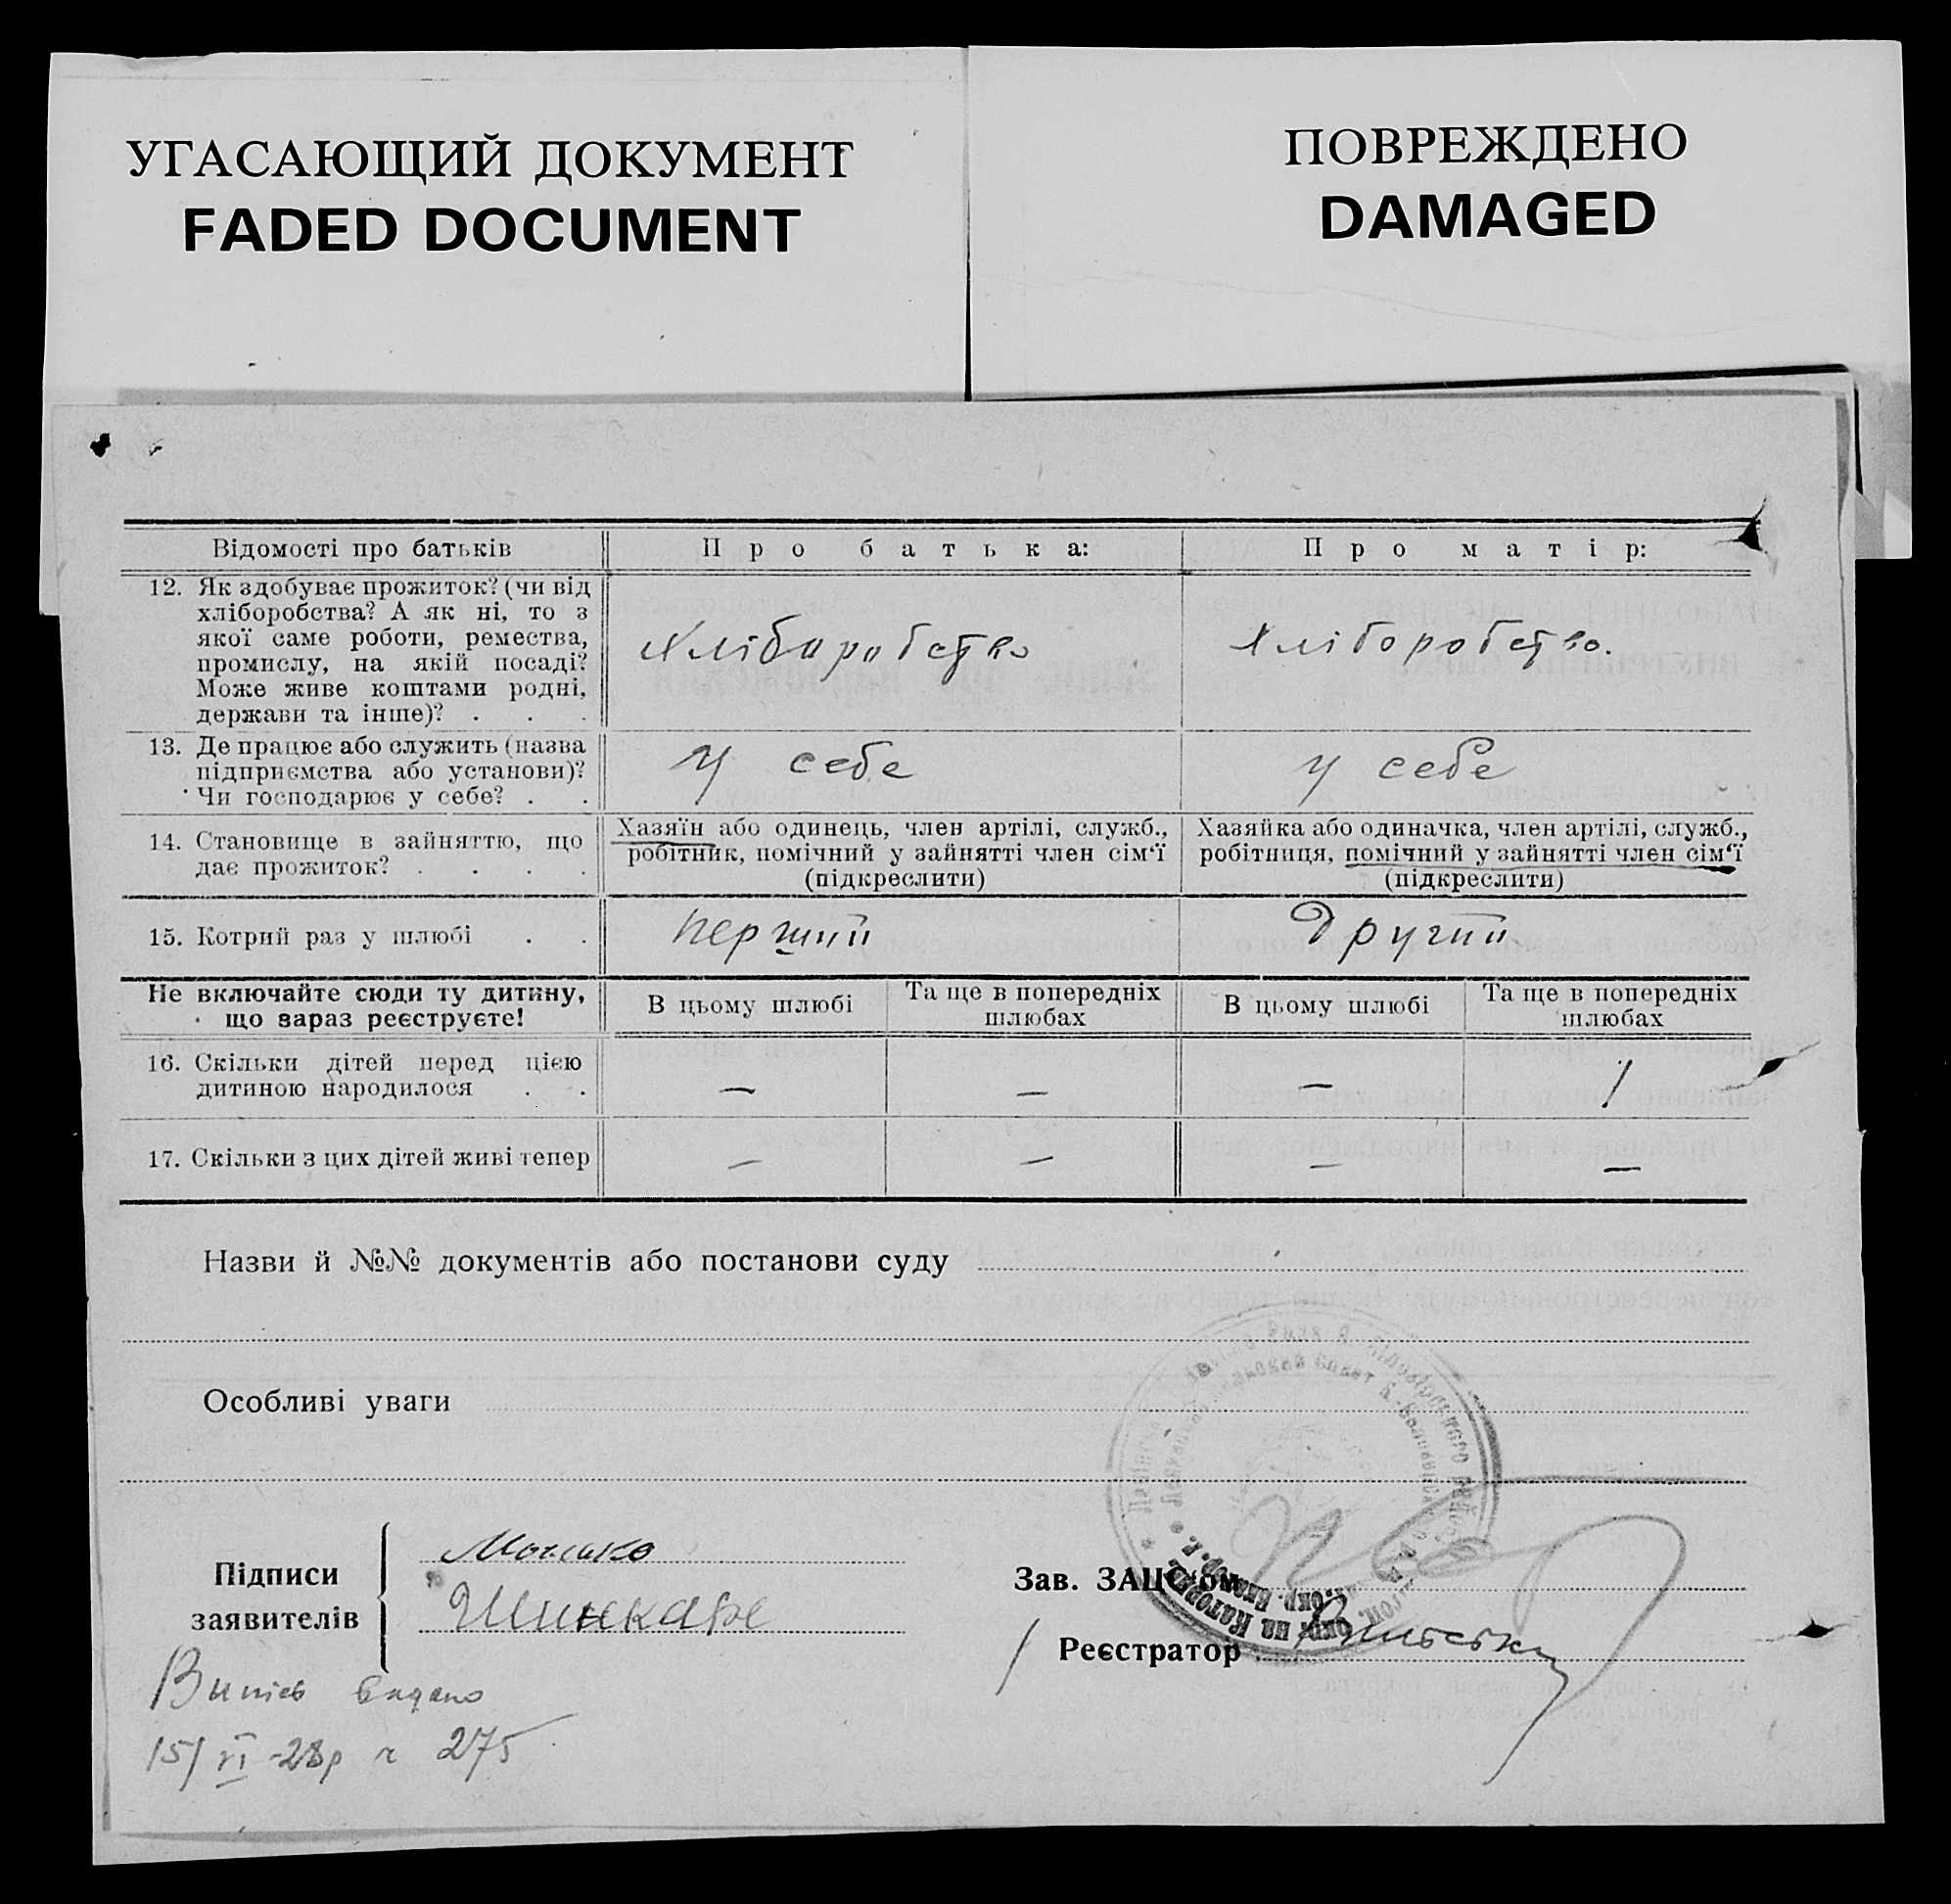 УГАСАЮЩИЙ ДОКУМЕНТ
FADED DOCUMENT
ПОВРЕЖДЕНО
DAMAGED
Відомості про батьків
Про батька:
Про матір:
12. Як здобуває прожиток? (чи від
хліборобства? А як ні, то з
якої саме роботи, ремества,
промислу, на якій посаді?
Може живе коштами родні,
держави та інше)? . . .
Хліборобство
Хліборобство.
13. Де працює або служить (назва
підприємства або установи)?
Чи господарює у себе? . .
у себе
у себе
14. Становище в зайняттю, що
дає прожиток? . . . .
Хазяїн або одинець, член артілі, служб.,
робітник, помічний у зайнятті член сім‘ї
(підкреслити)
Хазяйка або одиначка, член артілі, служб.,
робітниця, помічний у зайнятті член сім‘ї
(підкреслити)
15. Котрий раз у шлюбі . .
перший
Другий
Не включайте сюди ту дитину,
що зараз реєструєте!
В цьому шлюбі
Та ще в попередніх
шлюбах
В цьому шлюбі
Та ще в попередніх
шлюбах
16. Скільки дітей перед цією
дитиною народилося . .
— — — 1
17. Скільки з цих дітей живі тепер
— — — —
Назви й №№ документів або постанови суду
Особливі уваги
Підписи
заявителів
Шинкаре
Зав. ЗАЦС‘ом
Реєстратор
Випис видано
15/VI-28р ч 275